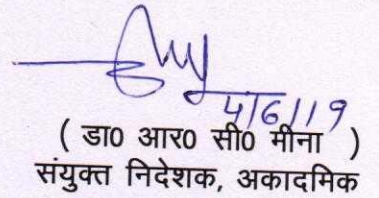 4/6/19
( डा0 आर0 सी0 मीना )
संयुक्त निदेशक, अकादमिक